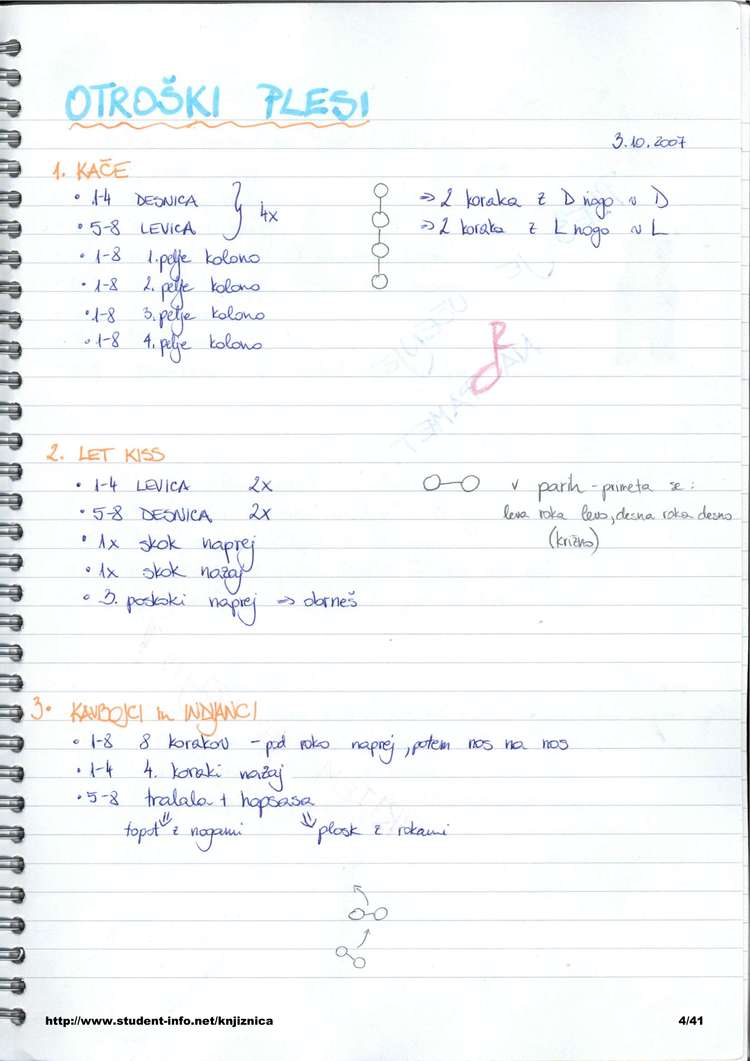 OTROŠKI PLESI
3.10.2007
1. KAČE
• 1-4 DESNICA } 4x
• 5-8 LEVICA
⇒ 2 koraka z D nogo v D
⇒ 2 koraka z L nogo v L
• 1-8 1. pelje kolono
• 1-8 2. pelje kolono
• 1-8 3. pelje kolono
• 1-8 4. pelje kolono
2. LET KISS
• 1-4 LEVICA 2x
• 5-8 DESNICA 2x
• 1x skok naprej
• 1x skok nazaj
• 3. poskoki naprej ⇒ obrneš
v parih - primeta se:
leva roka levo, desna roka desno
(križno)
3. KAVBOJCI in INDIJANCI
• 1-8 8 korakov - pod roko naprej, potem nos na nos
• 1-4 4. koraki nazaj
• 5-8 tralala + hopsasa
topot z nogami plosk z rokami
http://www.student-info.net/knjiznica 4/41